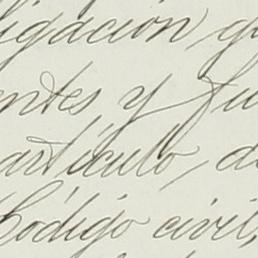 ligación q
entes y fu
artículo, d
Código civil,